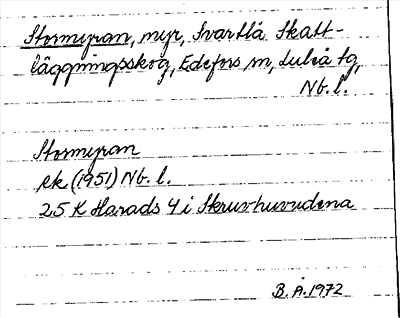 Stormyran, myr, Svartlå Skatt-
läggningsskog, Edefors sn, Luleå tg,
Nb. l.
Stormyran
ek. (1951) Nb. l.
25 K Harads 4 i Skruvhuvudena
B. Å. 1972